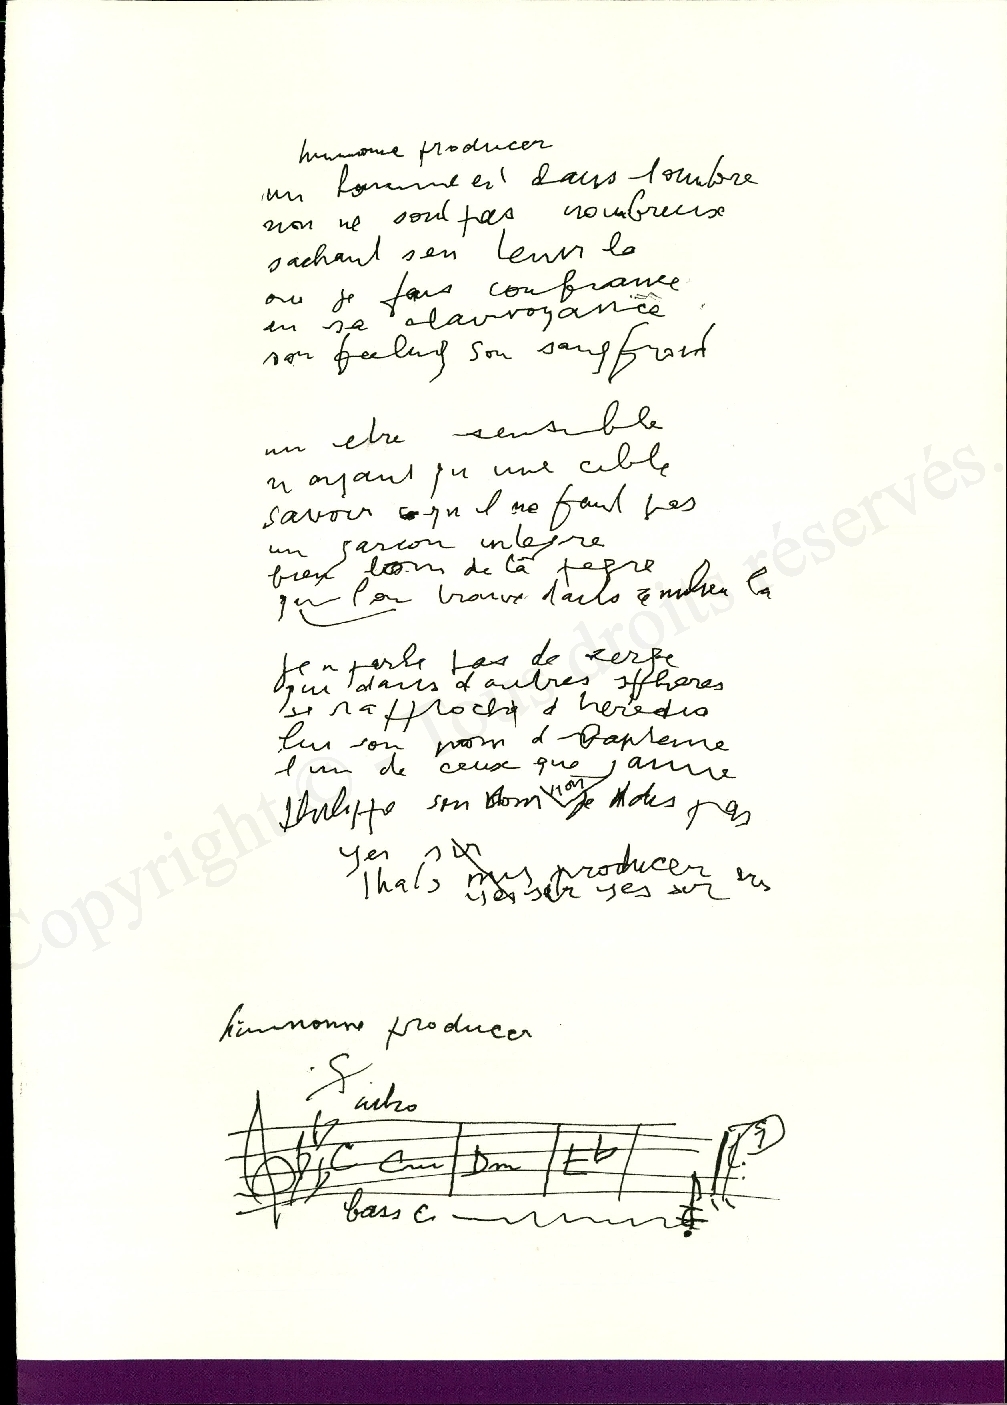 hummome producer
un homme est dans l'ombre
non ne sont pas nombreux
sachant s'en tenir la
ou je fais confiance
en sa clairvoyance
son feeling son sang froid
un etre sensible
n ayant qu une cible
savoir qu il ne faut pas
un garcon integre
bien loin de la pegre
qu l'on trouve dans milieu la
je n parle pas de
qui dans d'autres spheres
se rapproche d heredia
lui son nom d Bapteme
l un de ceux que j aime
Philippe son nom non je dis pas
yes sir
Thats mys producer
yes sir yes sir
hummomme producer
intro
C Cm Dm Eb
bass C
Copyright © Tous droits réservés.